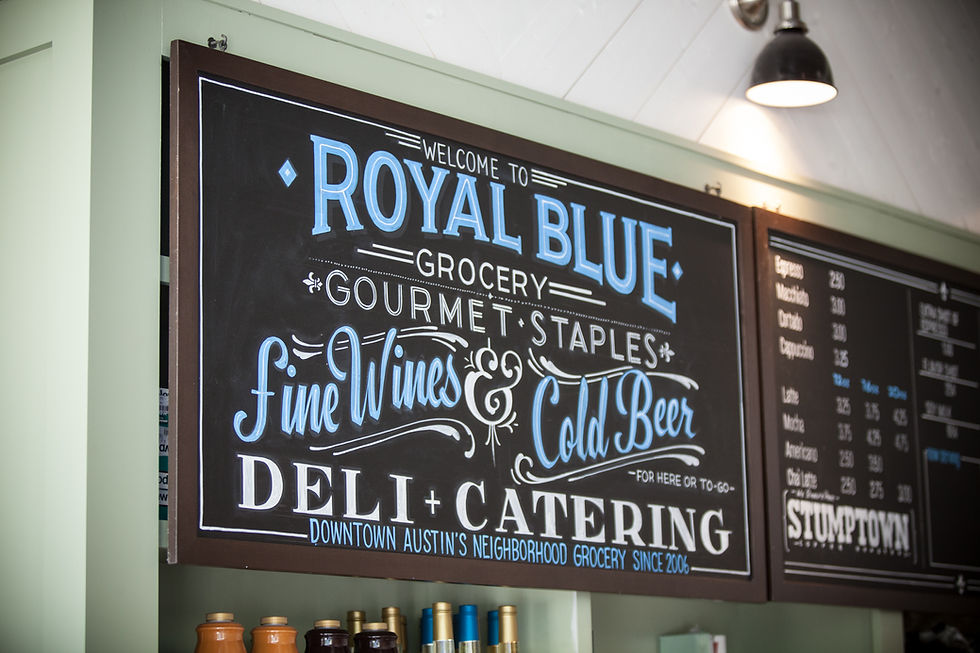 WELCOME TO
ROYAL BLUE
GROCERY
GOURMET · STAPLES
fine Wines & Cold Beer
-FOR HERE OR TO-GO-
DELI + CATERING
DOWNTOWN AUSTIN'S NEIGHBORHOOD GROCERY SINCE 2006
Espresso 2.50
Macchiato 3.00
Cortado 3.00
Cappuccino 3.25
Latte 3.25 3.75 4.25
Mocha 3.75 4.25 4.75
Americano 2.50 3.50
Chai Latte 2.50 2.75 3.00
STUMPTOWN